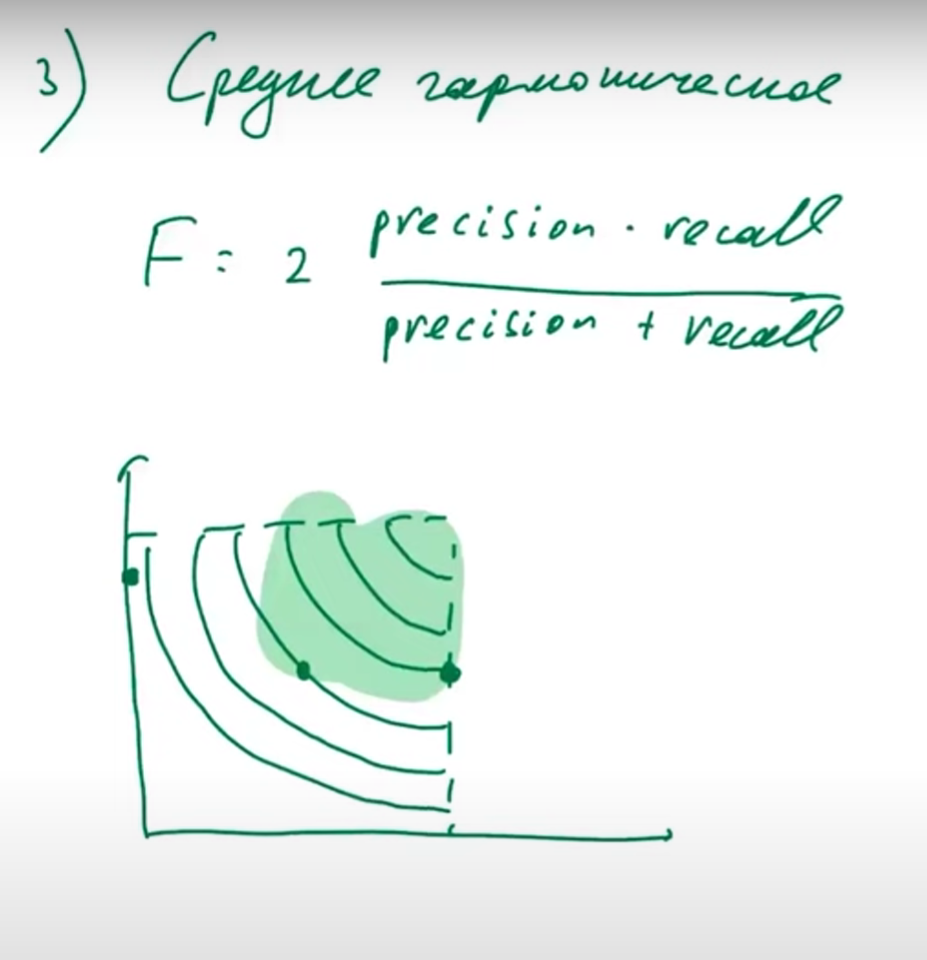 3) Среднее гармоническое
F = 2 precision · recall
precision + recall